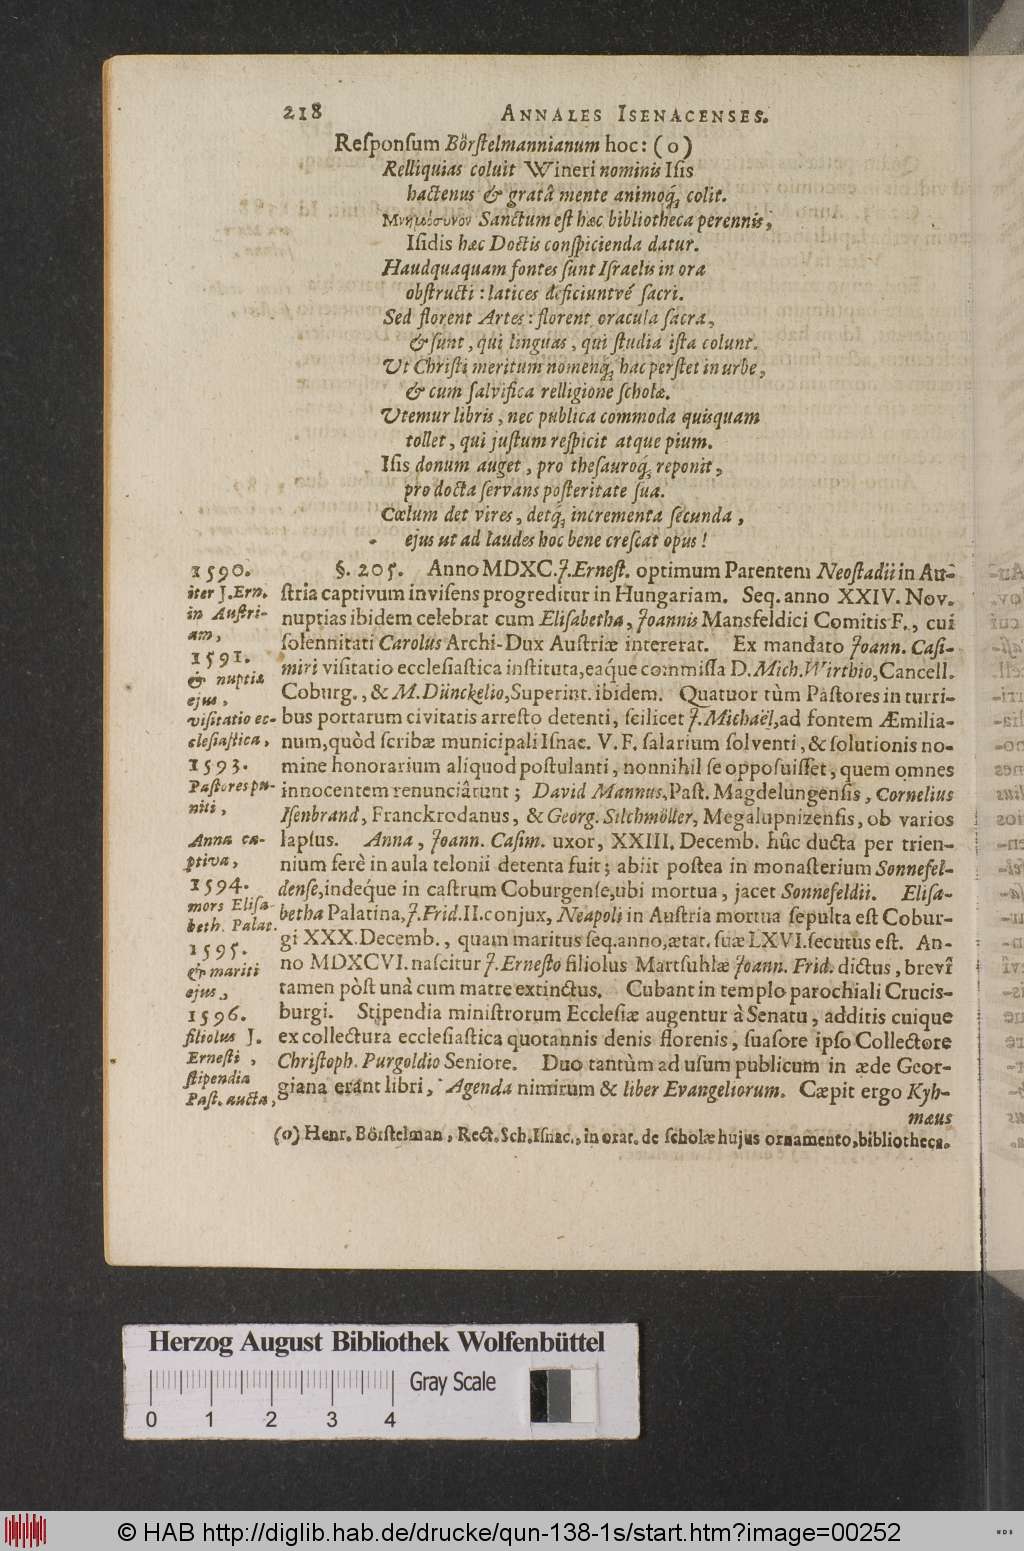 218 ANNALES ISENACENSES.
Reſponſum Börſtelmannianum hoc: (o)
Relliquias coluit Wineri nominis Iſis
hactenus & gratâ mente animoq́; colit.
Μνημόσυνον Sanctum eſt hæc bibliotheca perennis,
Iſidis hæc Doctis conſpicienda datur.
Haudquaquam fontes ſunt Iſraelis in ora
obſtructi: latices deficiuntvé ſacri.
Sed florent Artes: florent oracula ſacra,
& ſunt, qui linguas, qui ſtudia iſta colunt.
Ut Chriſti meritum nomenq́; hac perſtet in urbe,
& cum ſalvifica relligione ſcholæ.
Utemur libris, nec publica commoda quisquam
tollet, qui juſtum reſpicit atque pium.
Iſis donum auget, pro theſauroq́; reponit,
pro docta ſervans poſteritate ſua.
Cœlum det vires, detq́; incrementa ſecunda,
ejus ut ad laudes hoc bene creſcat opus!
§. 205. Anno MDXC. J. Erneſt. optimum Parentem Neoſtadii in Au-
ſtria captivum inviſens progreditur in Hungariam. Seq. anno XXIV. Nov.
nuptias ibidem celebrat cum Eliſabetha, Joannis Mansfeldici Comitis F., cui
ſolennitati Carolus Archi-Dux Auſtriæ intererat. Ex mandato Joann. Caſi-
miri viſitatio eccleſiaſtica inſtituta, eaq́ue commiſſa D. Mich. Wirthio, Cancell.
Coburg., & M. Dünckelio, Superint. ibidem. Quatuor tùm Paſtores in turri-
bus portarum civitatis arreſto detenti, ſcilicet J. Michaël, ad fontem Æmilia-
num, quòd ſcribæ municipali Iſnac. V. F. ſalarium ſolventi, & ſolutionis no-
mine honorarium aliquod poſtulanti, nonnihil ſe oppoſuiſſet, quem omnes
innocentem renunciârunt; David Mannus, Paſt. Magdelungenſis, Cornelius
Iſenbrand, Franckrodanus, & Georg. Silchmöller, Megalupnizenſis, ob varios
lapſus. Anna, Joann. Caſim. uxor, XXIII. Decemb. hûc ducta per trien-
nium ferè in aula telonii detenta fuit; abiit poſtea in monaſterium Sonnefel-
denſe, indeq́ue in caſtrum Coburgenſe, ubi mortua, jacet Sonnefeldii. Eliſa-
betha Palatina, J. Frid. II. conjux, Neapoli in Auſtria mortua ſepulta eſt Cobur-
gi XXX. Decemb., quam maritus ſeq. anno, ætat. ſuæ LXVI. ſecutus eſt. An-
no MDXCVI. naſcitur J. Erneſto filiolus Martſuhlæ Joann. Frid. dictus, brevî
tamen pòſt unà cum matre extinctus. Cubant in templo parochiali Crucis-
burgi. Stipendia miniſtrorum Eccleſiæ augentur à Senatu, additis cuique
ex collectura eccleſiaſtica quotannis denis florenis, ſuaſore ipſo Collectore
Chriſtoph. Purgoldio Seniore. Duo tantùm ad uſum publicum in æde Geor-
giana erant libri, Agenda nimirum & liber Evangeliorum. Cæpit ergo Kyh-
mæus
(o) Henr. Börſtelman, Rect. Sch. Iſnac., in orat. de ſcholæ hujus ornamento, bibliotheca.
1590.
iter J. Ern.
in Auſtri-
am,
1591.
& nuptiæ
ejus,
viſitatio ec-
cleſiaſtica,
1593.
Paſtores pu-
niti,
Anna ca-
ptiva,
1594.
mors Eliſa-
beth. Palat.
1595.
& mariti
ejus,
1596.
filiolus J.
Erneſti,
ſtipendia
Paſt. aucta,
Herzog August Bibliothek Wolfenbüttel
Gray Scale
0 1 2 3 4
© HAB http://diglib.hab.de/drucke/qun-138-1s/start.htm?image=00252